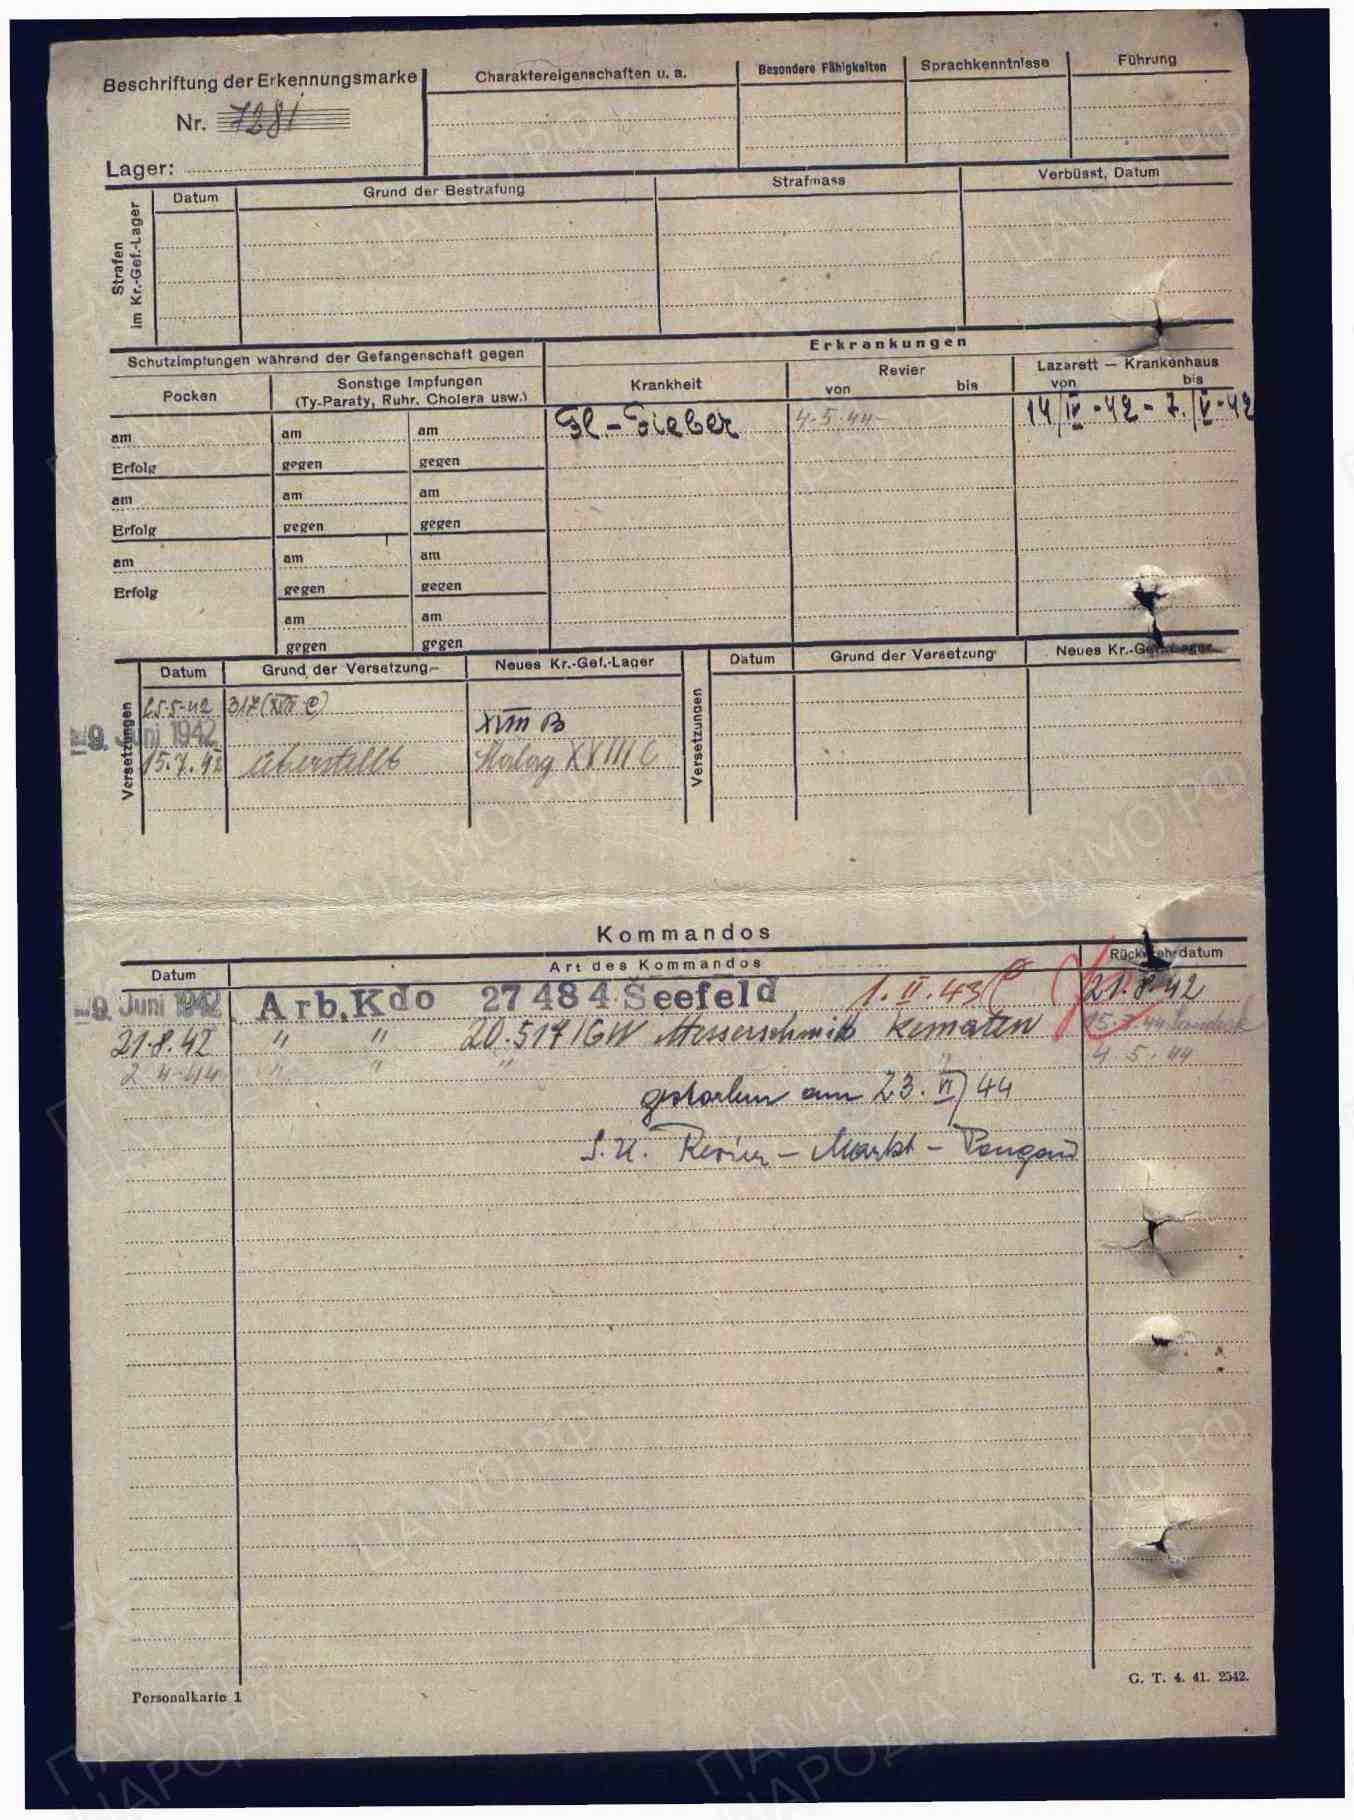 Beschriftung der Erkennungsmarke
Nr. 7281
Lager:
Charaktereigenschaften u. a.
Besondere Fähigkeiten
Sprachkenntnisse
Führung
Strafen
im Kr.-Gef.-Lager
Datum
Grund der Bestrafung
Strafmass
Verbüsst, Datum
Schutzimpfungen während der Gefangenschaft gegen
Erkrankungen
Pocken
Sonstige Impfungen
(Ty-Paraty, Ruhr, Cholera usw.)
Krankheit
Revier
von bis
Lazarett — Krankenhaus
von bis
am am am
Fl.-Fieber 4-5-44- 14/IV-42-7./V-42
Erfolg gegen gegen
am am am
Erfolg gegen gegen
am am am
Erfolg gegen gegen
am am
gegen gegen
Versetzungen
Datum Grund der Versetzung Neues Kr.-Gef.-Lager
25-5-42 317
9. Juni 1942 XVIII B
15.7.42 überstellt XVIII C
Versetzungen
Datum Grund der Versetzung Neues Kr.-Gef.-Lager
Kommandos
Datum Art des Kommandos Rückkehrdatum
9. Juni 1942 Arb.Kdo 27484 Seefeld 1.II.43 21.8.42
21.8.42 " " 20.517/GW Messerschmitt Kematen
2 4.44 " " " " 4.5.44
gestorben am 23.VI/44
Revier - Markt - Pongau
Personalkarte 1
G. T. 4. 41. 2542.
ЦАМО РФ
ПАМЯТЬ
НАРОДА